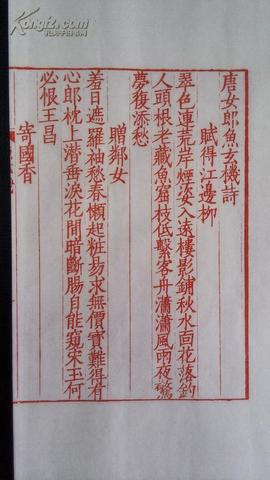 Kongfz.com
孔夫子旧书网
唐女郎魚玄機詩
賦得江邊柳
翠色連荒岸煙姿入遠樓影鋪秋水面花落釣
人頭根老藏魚窟枝低繫客舟瀟瀟風雨夜驚
夢復添愁
贈鄰女
羞日遮羅袖愁春懶起粧易求無價寶難得有
心郎枕上潛垂淚花間暗斷腸自能窺宋玉何
必恨王昌
寄國香